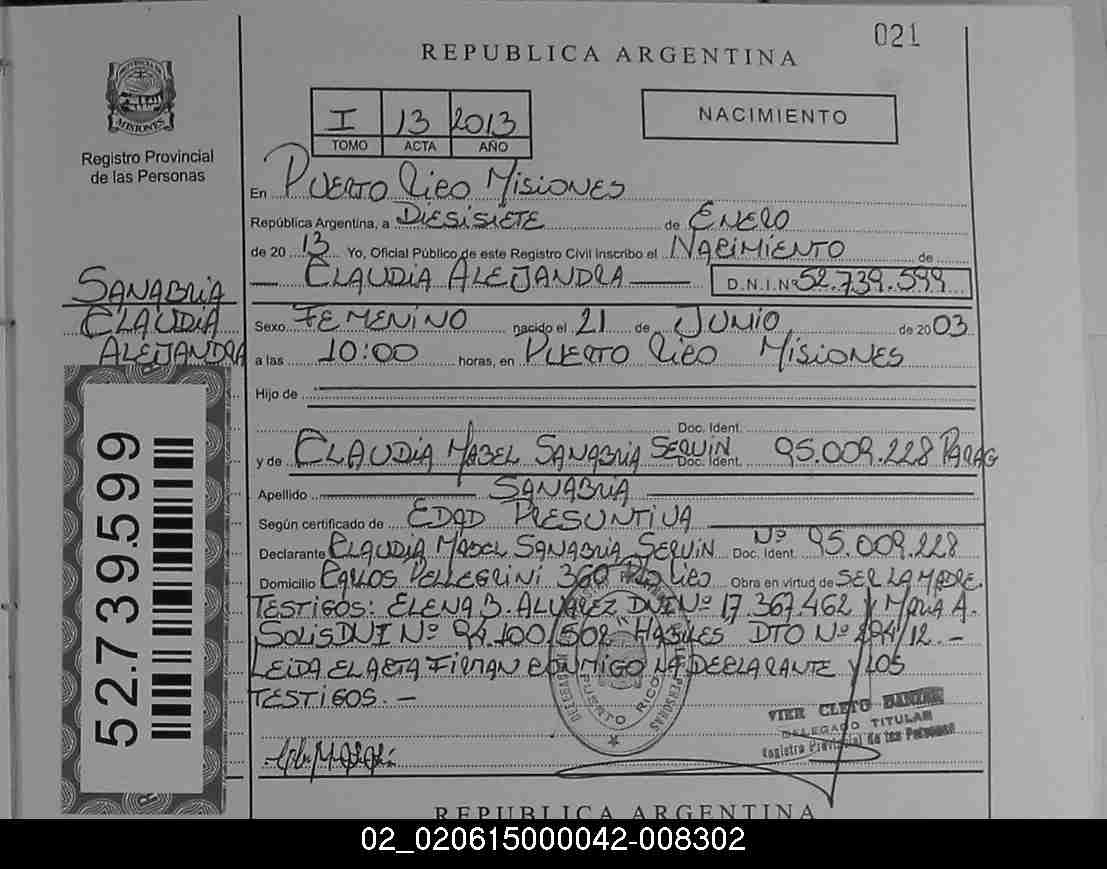 021
REPUBLICA ARGENTINA
PROVINCIA DE
MISIONES
Registro Provincial
de las Personas
I 13 2013
TOMO ACTA AÑO
NACIMIENTO
En PUERTO RICO MISIONES
República Argentina, a DIESISIETE de ENERO
de 20 13 Yo, Oficial Público de este Registro Civil inscribo el NACIMIENTO de
CLAUDIA ALEJANDRA D.N.I.Nº 52.739.599
SANABRIA
CLAUDIA
ALEJANDRA
Sexo FEMENINO nacido el 21 de JUNIO de 2003
a las 10:00 horas, en PUERTO RICO MISIONES
Hijo de
Doc. Ident.
y de CLAUDIA MABEL SANABRIA SEQUIN Doc. Ident. 95.009.228 PARAG
Apellido SANABRIA
Según certificado de EDAD PRESUNTIVA
Declarante CLAUDIA MABEL SANABRIA SEQUIN Doc. Ident. Nº 95.009.228
Domicilio CARLOS PELLEGRINI 360 PTO RICO Obra en virtud de SER LA MADRE.
TESTIGOS: ELENA B. ALVAREZ DNI Nº 17.367.462 Y MARIA A.
SOLIS DNI Nº 94.100.502 HABILES DTO Nº 294/12.-
LEIDA EL ACTA FIRMAN CONMIGO LA DECLARANTE Y LOS
TESTIGOS.-
52.739.599
PUERTO RICO
VIER CLETO
DELEGADO TITULAR
Registro Provincial de las Personas
REPUBLICA ARGENTINA
02_020615000042-008302